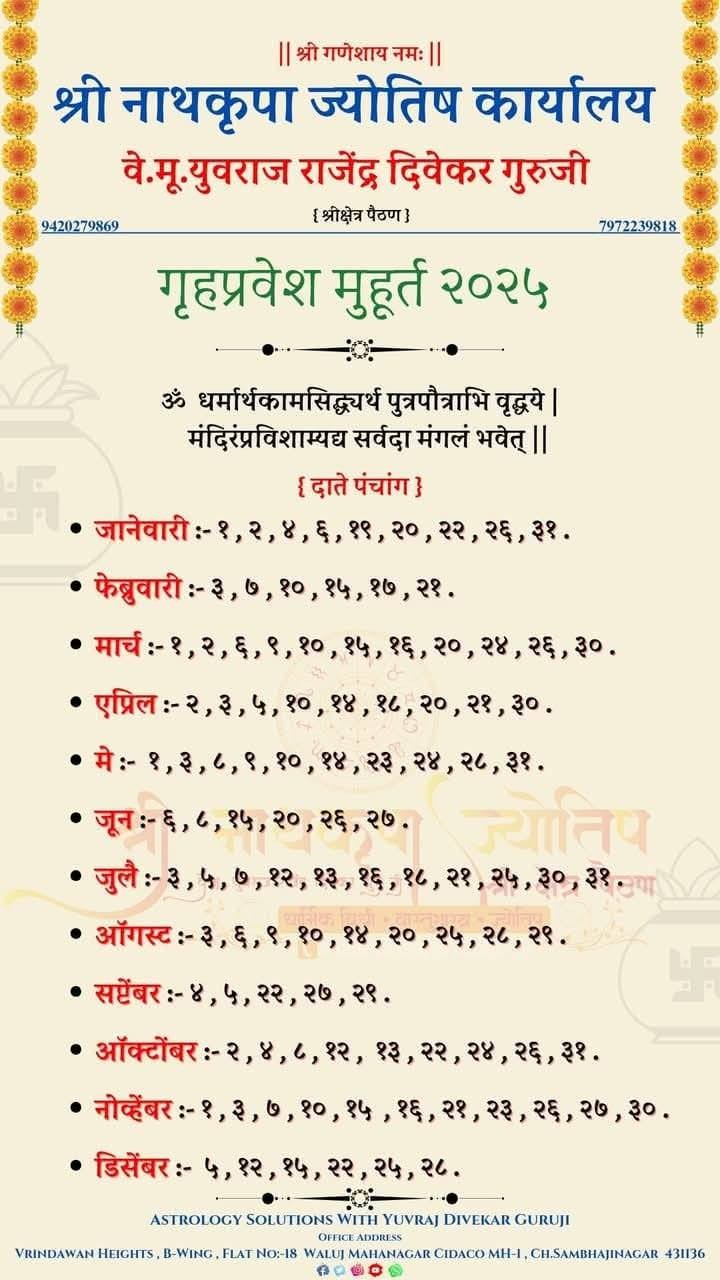 || श्री गणेशाय नमः ||
श्री नाथकृपा ज्योतिष कार्यालय
वे.मू.युवराज राजेंद्र दिवेकर गुरुजी
{ श्रीक्षेत्र पैठण }
9420279869 7972239818
गृहप्रवेश मुहूर्त २०२५
ॐ धर्मार्थकामसिद्ध्यर्थ पुत्रपौत्राभि वृद्धये |
मंदिरंप्रविशाम्यद्य सर्वदा मंगलं भवेत् ||
{ दाते पंचांग }
• जानेवारी :- १ , २ , ४ , ६ , १९ , २० , २२ , २६ , ३१ .
• फेब्रुवारी :- ३ , ७ , १० , १५ , १७ , २१ .
• मार्च :- १ , २ , ६ , ९ , १० , १५ , १६ , २० , २४ , २६ , ३० .
• एप्रिल :- २ , ३ , ५ , १० , १४ , १८ , २० , २१ , ३० .
• मे :- १ , ३ , ८ , ९ , १० , १४ , २३ , २४ , २८ , ३१ .
• जून :- ६ , ८ , १५ , २० , २६ , २७ .
श्री नाथकृपा ज्योतिष
• जुलै :- ३ , ५ , ७ , १२ , १३ , १६ , १८ , २१ , २५ , ३० , ३१ .
श्री क्षेत्र पैठण
धार्मिक विधी • वास्तुशास्त्र • ज्योतिष
• ऑगस्ट :- ३ , ६ , ९ , १० , १४ , २० , २५ , २८ , २९ .
• सप्टेंबर :- ४ , ५ , २२ , २७ , २९ .
• ऑक्टोंबर :- २ , ४ , ८ , १२ , १३ , २२ , २४ , २६ , ३१ .
• नोव्हेंबर :- १ , ३ , ७ , १० , १५ , १६ , २१ , २३ , २६ , २७ , ३० .
• डिसेंबर :- ५ , १२ , १५ , २२ , २५ , २८ .
ASTROLOGY SOLUTIONS WITH YUVRAJ DIVEKAR GURUJI
OFFICE ADDRESS
VRINDAWAN HEIGHTS , B-WING , FLAT NO:-18 WALUJ MAHANAGAR CIDACO MH-1 , CH.SAMBHAJINAGAR 431136